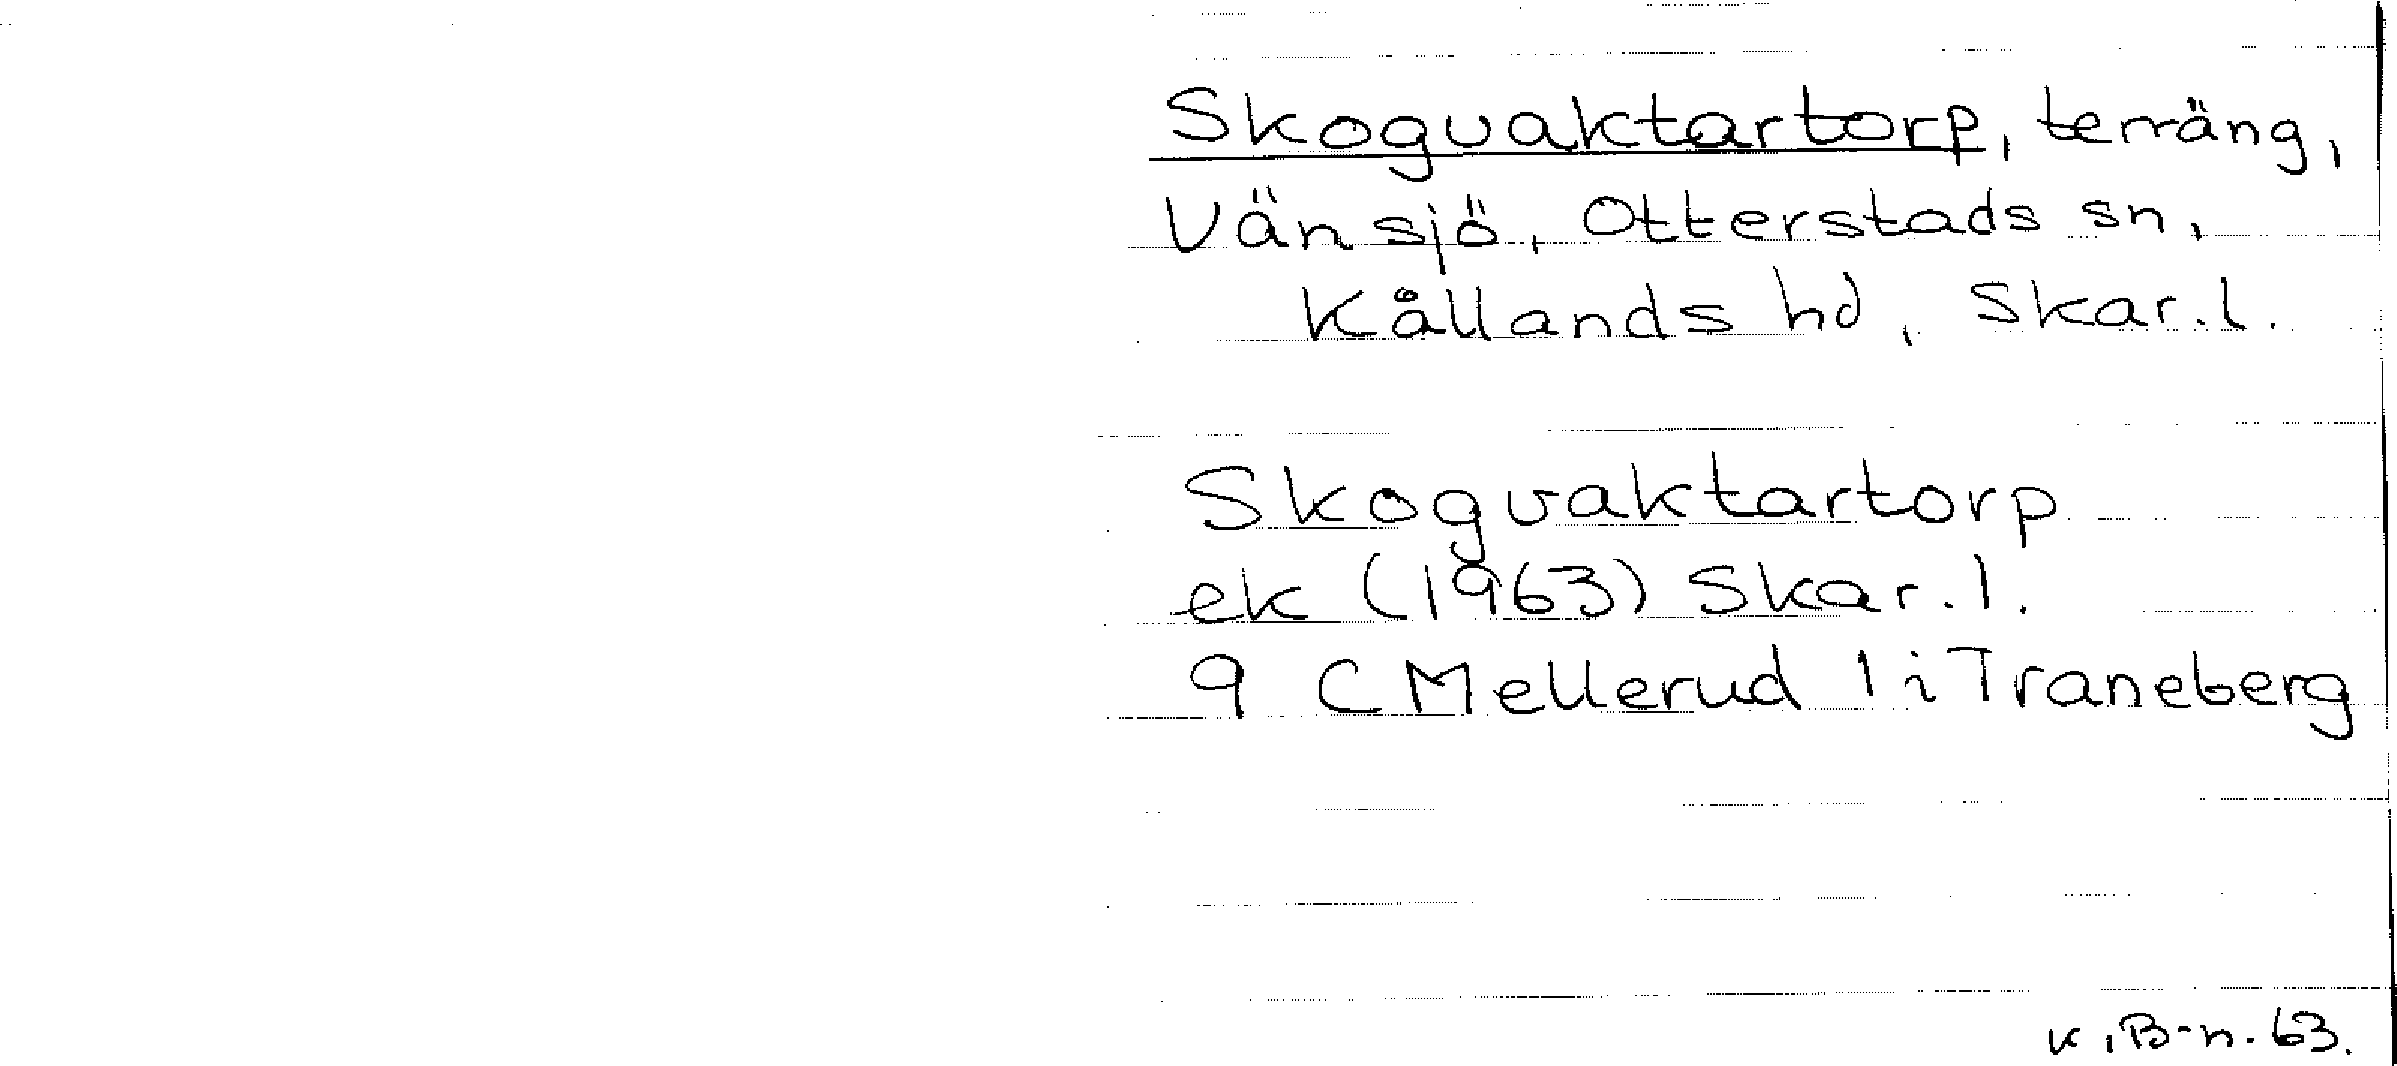 Skogvaktartorp, terräng,
Vänsjö, Otterstads sn,
Kållands hd, Skar.l.
Skogvaktartorp
ek (1963) Skar.l.
9 C Mellerud 1 i Traneberg
K.B-n. 63.